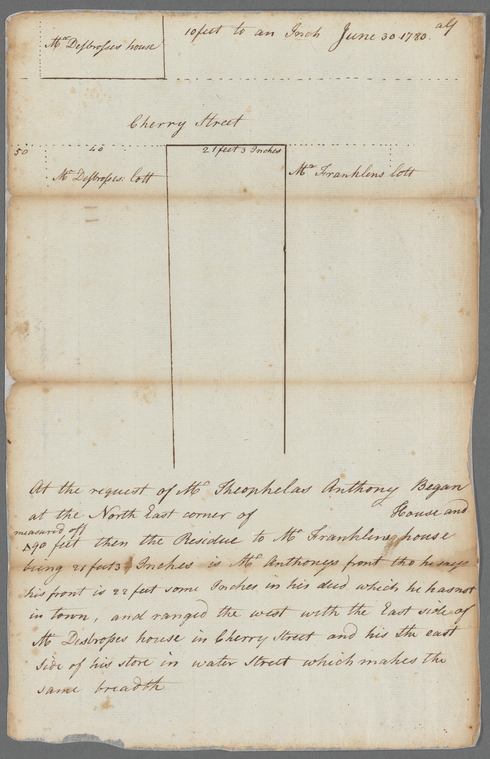 Mr Desbrosses house
10 feet to an Inch June 30 1780.
Cherry Street
50 40 21 feet 3 Inches
Mr Desbrosses lott
Mr Franklins lott
At the request of Mr Theophelas Anthony Began
at the North East corner of House and
measured off
90 feet then the Residue to Mr Franklins house
being 21 feet 3 Inches is Mr Anthonys front tho he says
his front is 22 feet some Inches in his deed which he has not
in town, and ranged the west with the East side of
Mr Desbrosses house in Cherry Street and his the east
side of his store in water Street which makes the
same breadth